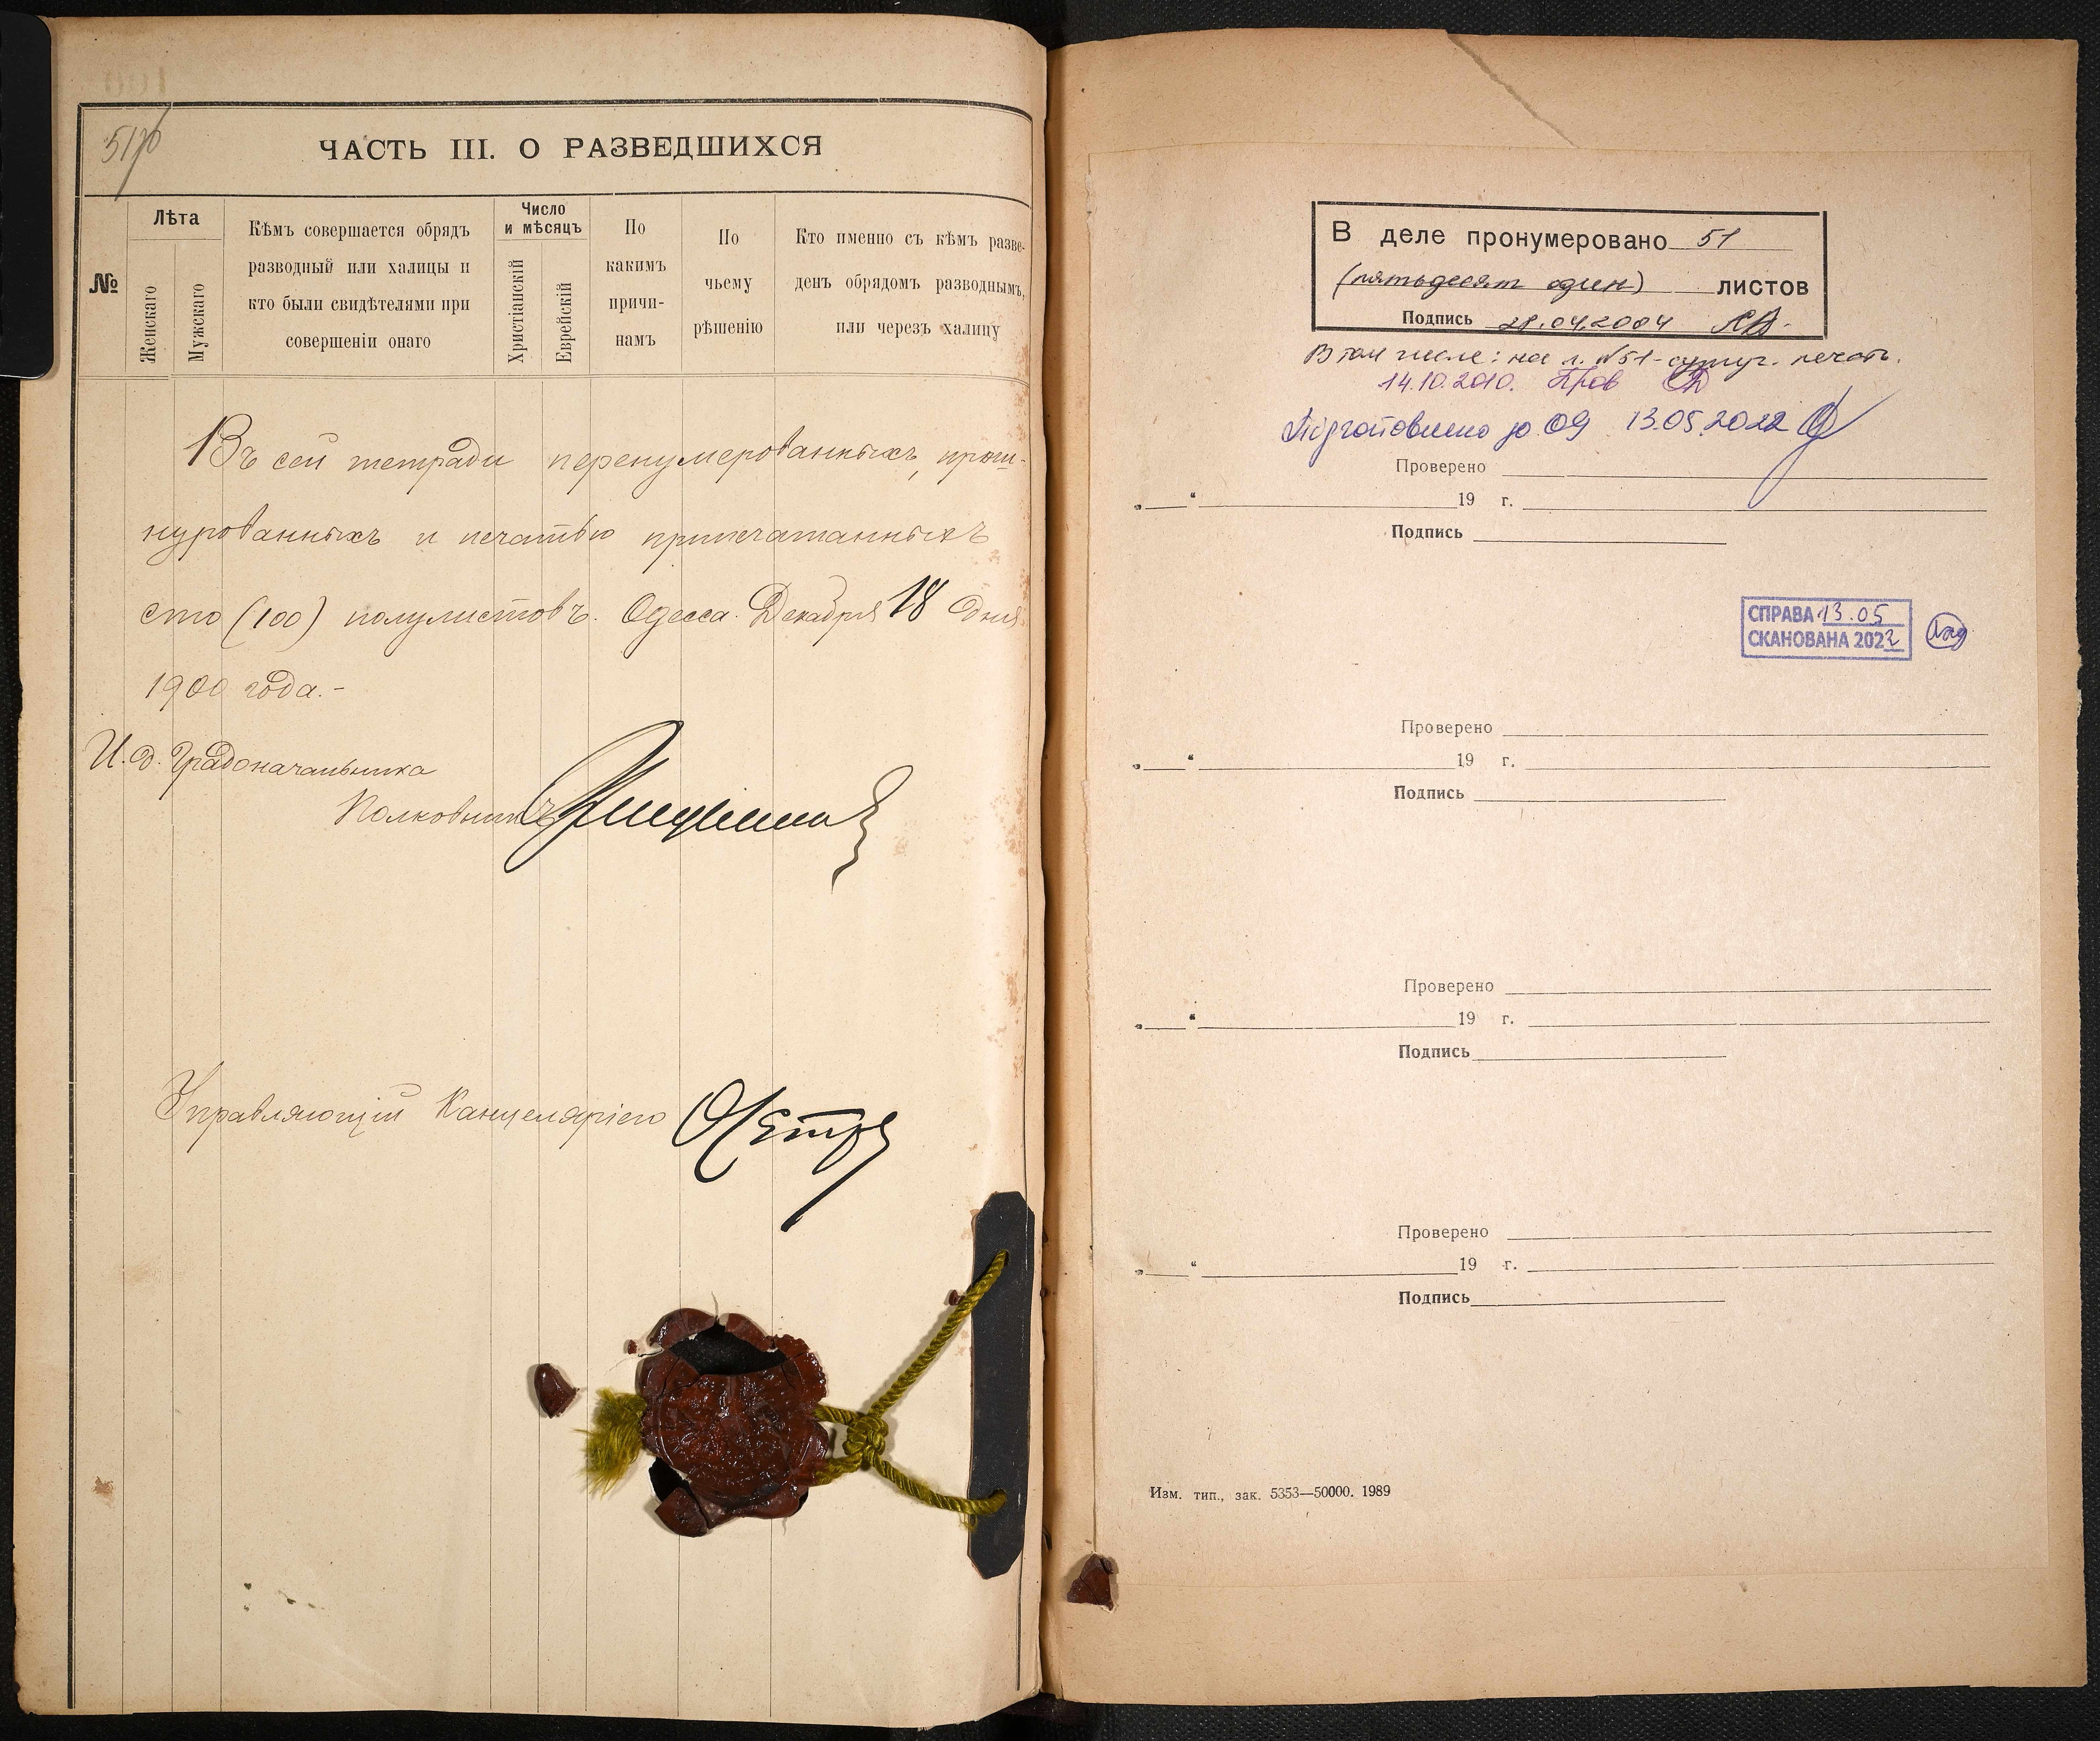 51об
ЧАСТЬ III. О РАЗВЕДШИХСЯ
№
Лѣта
Женскаго
Мужскаго
Кѣмъ совершается обрядъ
разводный или халицы и
кто были свидѣтелями при
совершеніи онаго
Число
и мѣсяцъ
Христіанскій
Еврейскій
По
какимъ
причи-
намъ
По
чьему
рѣшенію
Кто именно съ кѣмъ разве-
денъ обрядомъ разводнымъ,
или черезъ халицу
Въ сей тетради перенумерованныхъ, прош-
нурованныхъ и печатью припечатанныхъ
сто (100) полулистовъ. Одесса. Декабря 18 дня
1900 года.-
И. д. Градоначальника
Полковникъ
Управляющій Канцеляріею
В деле пронумеровано 51
(пятьдесят один) листов
Подпись 28.04.2004
В том числе: на л. №51-сургуч. печать.
14.10.2010. Пров
Підготовлено до 09 13.05.2022
Проверено
„ “ 19 г.
Подпись
СПРАВА 13.05
СКАНОВАНА 2022
Проверено
„ “ 19 г.
Подпись
Проверено
„ “ 19 г.
Подпись
Проверено
„ “ 19 г.
Подпись
Изм. тип., зак. 5353—50000. 1989